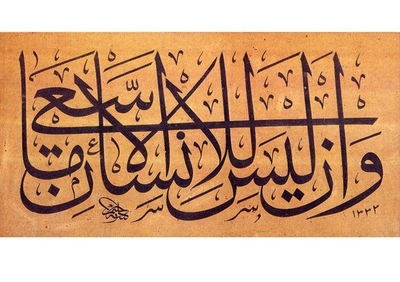 وأن ليس للإنسان إلا ما سعى
١٣٣٢